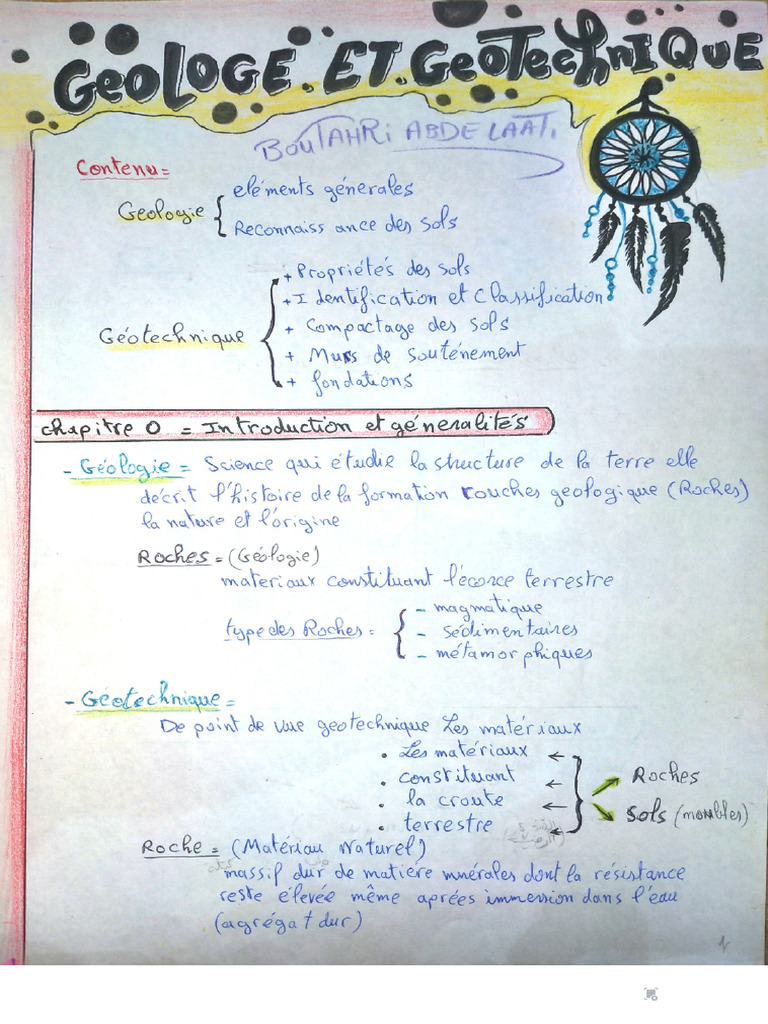 GEOLOGE ET GEOTECHNIQUE
BOUTAHRI ABDELAATI.
Contenu =
Geologie
eléments génerales
Reconnaiss ance des sols
Géotechnique
+ Propriétés des sols
+ Identification et classification
+ Compactage des sols
+ Murs de souténement
+ fondations
chapitre 0 = Introduction et géneralités
- Géologie = Science qui étudie la structure de la terre elle
décrit l'histoire de la formation couches geologique (Roches)
la nature et l'origine
Roches = (Géologie)
materiaux constituant l'écorce terrestre
type des Roches =
- magmatique
- sédimentaires
- métamorphiques
- Géotechnique =
De point de vue geotechnique Les matériaux
. Les matériaux ←
. constituant ←
. la croute ←
. terrestre ←
Roches
Sols (meubles)
Roche = (Matériau Naturel)
massif dur de matiére minérales dont la résistance
reste élevée même aprées immersion dans l'eau
(agrégat dur)
1